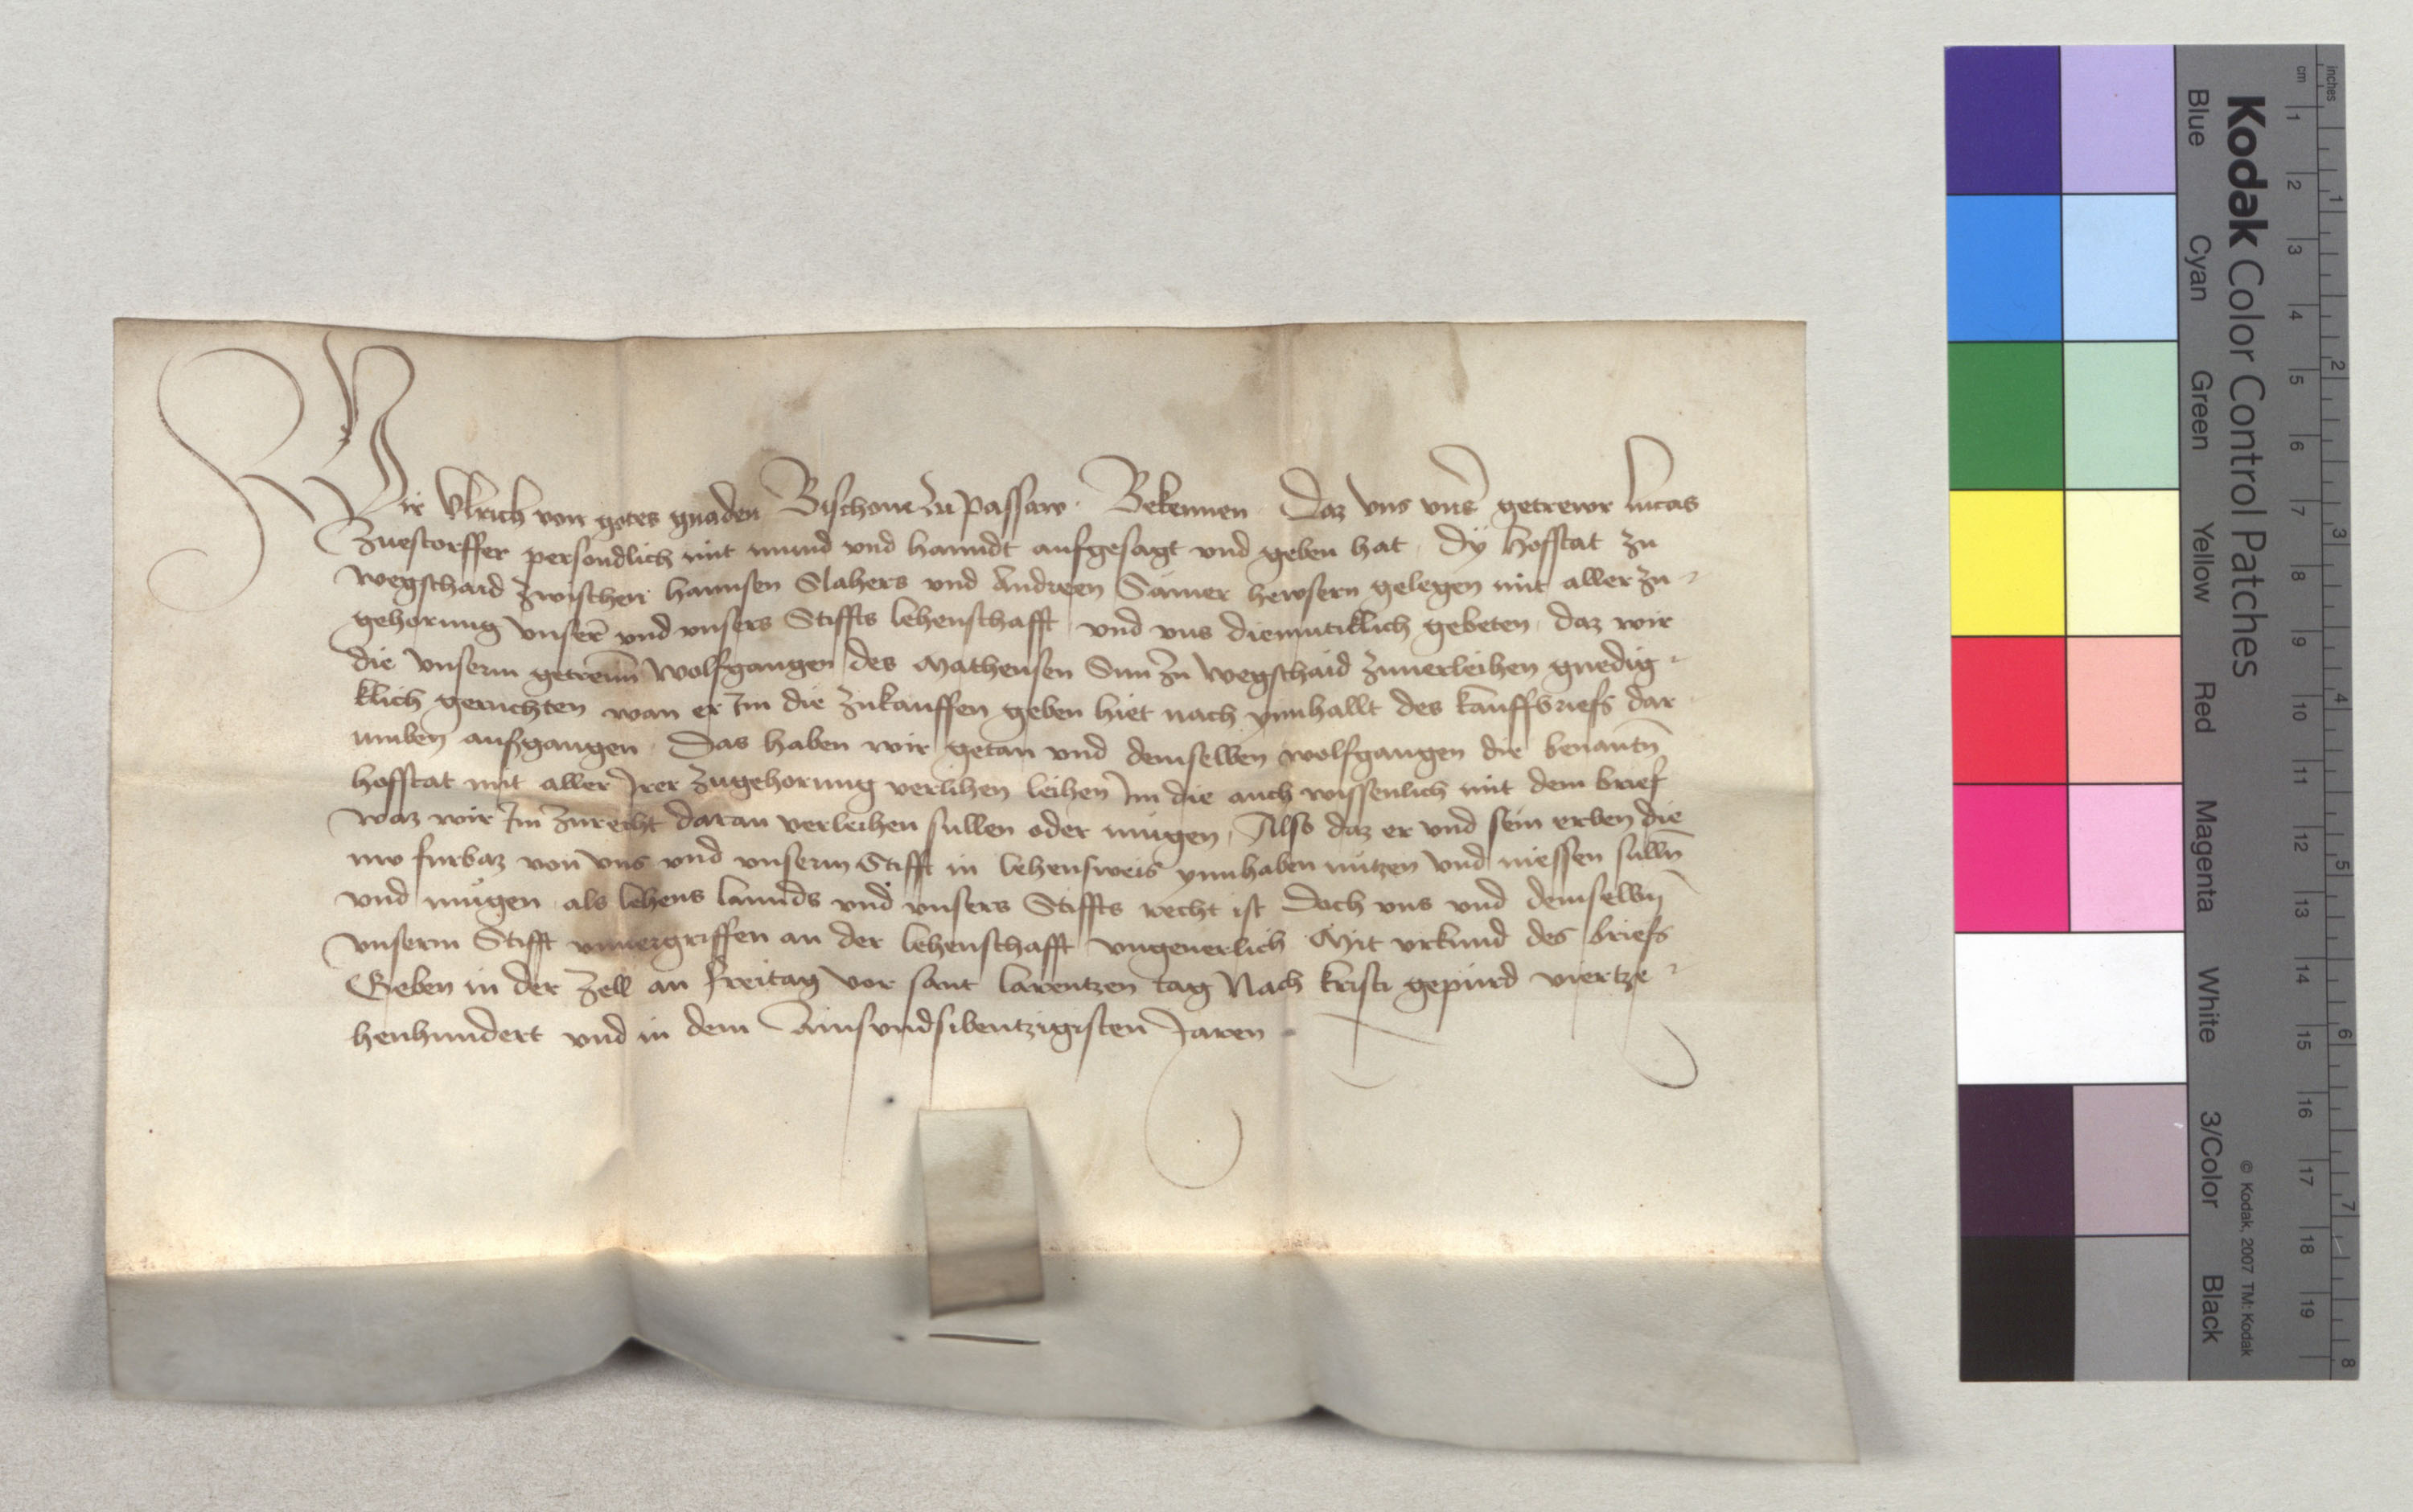 Wir Ulrich von gotes gnaden Bischoue zu Passaw. Bekennen Daz vns vnser getrewr Lucas
Zuestorffer persondlich mit mund vnd hanndt aufgesagt vnd geben hat, Dy Hofstat zu
Wegschaid zwischen Hannsen Slahers vnd Andreen Sämer hewsern gelegen mit aller zu-
gehorung vnser vnd vnsers Stiffts lehenschafft vnd vns diemuticklich gebeten, daz wir
die vnserm getrewn Wolfgangen des Mathensen Sun zu Wegschaid zuuerleihen gnedig-
klich geruchten wan er Im die zukauffen geben hiet nach ynnhallt des kauffbriefs dar
umben aufgangen. Das haben wir getan vnd demselben Wolfgangen die benantn
hofstat mit aller Irer zugehorung verlihen leihen Im die auch wissenlich mit dem brief
Waz wir Im zurecht daran verleihen sullen oder mugen, Also daz er vnd sein erben die
nw furbaz von vns vnd vnserm Stifft in lehensweis ynnhaben nutzen vnd niessen sulln
vnd mugen als lehens lannds vnd vnsers Stiffts recht ist Doch vns vnd demselbn
vnserm Stifft vnuergriffen an der lehenschafft vngeuerlich Mit vrkund des briefs
Geben in der Zell an Freitag vor sant Larentzen tag Nach kristi gepurd viertze-
henhundert vnd in dem Ainsvndsibentzigisten Jaren
Kodak Color Control Patches
Blue Cyan Green Yellow Red Magenta White 3/Color Black
© Kodak, 2007 TM: Kodak
cm 1 2 3 4 5 6 7 8 9 10 11 12 13 14 15 16 17 18 19
inches 1 2 3 4 5 6 7 8